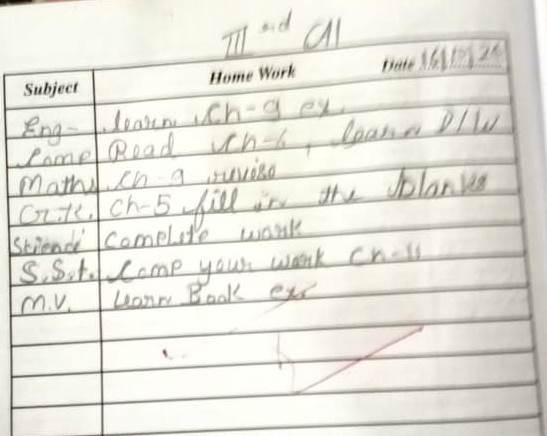 III rd
Subject Home Work Date 16/12/2
Eng- learn Ch-9 ex.
Comp Read Ch-6, learn D/W
Maths Ch-9 revise
G.K. Ch-5 fill in the blanks
Sciende Complete work
S.S.t. Comp your work Ch-11
M.V. Learn Book exr